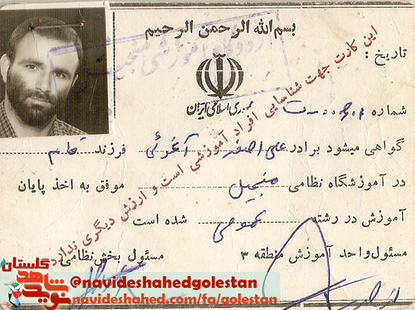 بسم الله الرحمن الرحیم
تاریخ :
جمهوری اسلامی ایران
شماره
این کارت جهت شناسایی افراد آموزشی است و ارزش دیگری ندارد
گواهی میشود برادر علی اصغر فرزند قاسم
در آموزشگاه نظامی منجیل موفق به اخذ پایان
آموزش در رشته عمومی شده است
مسئول واحد آموزش منطقه ۳ مسئول بخش نظامی
نوید شاهد گلستان
@navideshahedgolestan
navideshahed.com/fa/golestan